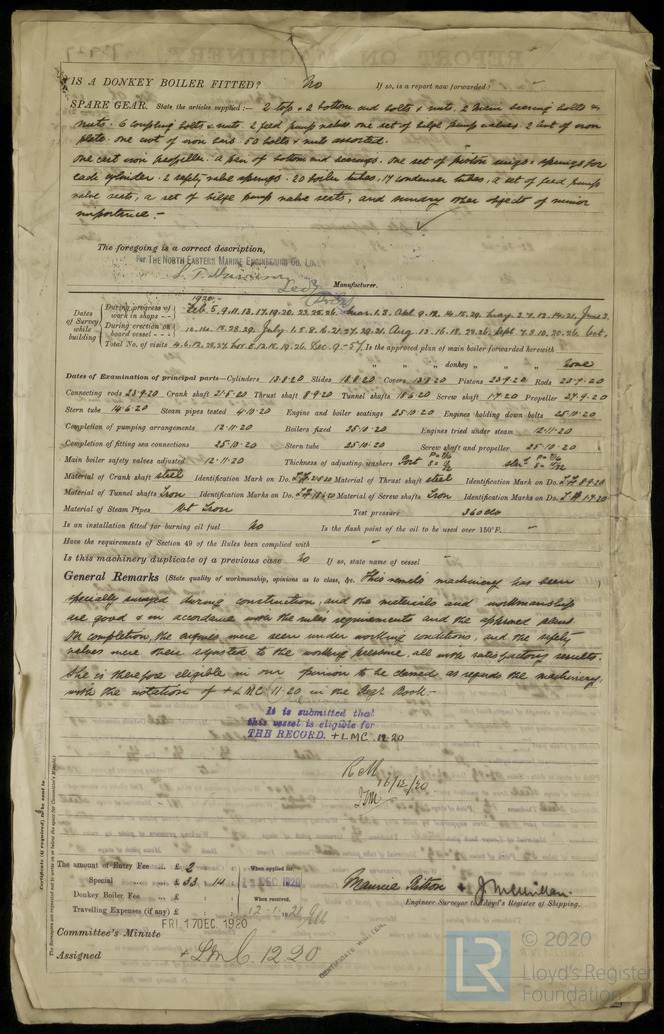 IS A DONKEY BOILER FITTED? No If so, is a report now forwarded?
SPARE GEAR. State the articles supplied:— 2 top & 2 bottom end bolts & nuts. 2 main bearing bolts &
nuts. 6 coupling bolts & nuts. 2 feed pump valves one set of bilge pump valves. 2 cwt of iron
plate. one cwt of iron bars. 50 bolts & nuts assorted.
One cast iron propeller. a pair of bottom end bearings. one set of piston rings & springs for
each cylinder. 2 safety valve springs. 20 boiler tubes, 17 condenser tubes, a set of feed pump
valve seats, a set of bilge pump valve seats, and sundry other objects of minor
importance.—
The foregoing is a correct description,
For THE NORTH EASTERN MARINE ENGINEERING CO. LTD.
Manufacturer.
Dates of Survey while building
1920:—
During progress of work in shops - - Feb. 5, 9, 11, 13, 17, 19, 20, 23, 25, 26. Mar. 1. 3. Apl. 9. 12. 14. 15. 29. May 3. 7. 12. 14. 21. June 3.
During erection on board vessel - - - July 1. 5. 8. Aug. Sept. Oct.
Total No. of visits Dec. 9.—57. Is the approved plan of main boiler forwarded herewith
" " " donkey " " " None
Dates of Examination of principal parts—Cylinders 13.8.20 Slides 18.8.20 Covers 13.8.20 Pistons 23.9.20 Rods 23.9.20
Connecting rods 23.9.20 Crank shaft 21.5.20 Thrust shaft 8.9.20 Tunnel shafts 18.6.20 Screw shaft 1.9.20 Propeller 27.9.20
Stern tube 14.6.20 Steam pipes tested 4.10.20 Engine and boiler seatings 25.10.20 Engines holding down bolts 25.10.20
Completion of pumping arrangements 12.11.20 Boilers fixed 25.10.20 Engines tried under steam 12.11.20
Completion of fitting sea connections 25.10.20 Stern tube 25.10.20 Screw shaft and propeller 25.10.20
Main boiler safety valves adjusted 12.11.20 Thickness of adjusting washers Port
Material of Crank shaft Steel Identification Mark on Do. Material of Thrust shaft Steel Identification Mark on Do. 8.9.20
Material of Tunnel shafts Iron Identification Marks on Do. 18.6.20 Material of Screw shafts Iron Identification Marks on Do.
Material of Steam Pipes Wt Iron Test pressure 360 lbs
Is an installation fitted for burning oil fuel No Is the flash point of the oil to be used over 150°F. —
Have the requirements of Section 49 of the Rules been complied with —
Is this machinery duplicate of a previous case No If so, state name of vessel —
General Remarks (State quality of workmanship, opinions as to class, &c. This vessel's machinery has been
specially surveyed during construction, and the materials and workmanship
are good & in accordance with the rules requirements and the approved plans.
On completion, the engines were seen under working conditions, and the safety
valves were then adjusted to the working pressure, all with satisfactory results.
She is therefore eligible in our opinion to be classed as regards the machinery
with the notation of + LMC 11.20 in the Regr. Book.—
It is submitted that
this vessel is eligible for
THE RECORD. + LMC 12 20
16/12/20
Certificate (if required) to be sent to
(The Surveyors are requested not to write on or below the space for Committee's Minute.)
The amount of Entry Fee .. £ 2 : : When applied for,
Special ... ... £ 33 : 14 : 13 DEC 1920
Donkey Boiler Fee ... £ : : When received,
Travelling Expenses (if any) £ : : 12.1.21
Maurice Ritson & J McMillan.
Engineer Surveyor to Lloyd's Register of Shipping.
FRI. 17 DEC. 1920
Committee's Minute
Assigned + LMC. 12 20
CERTIFICATE WRITTEN
LR © 2020
Lloyd's Register
Foundation